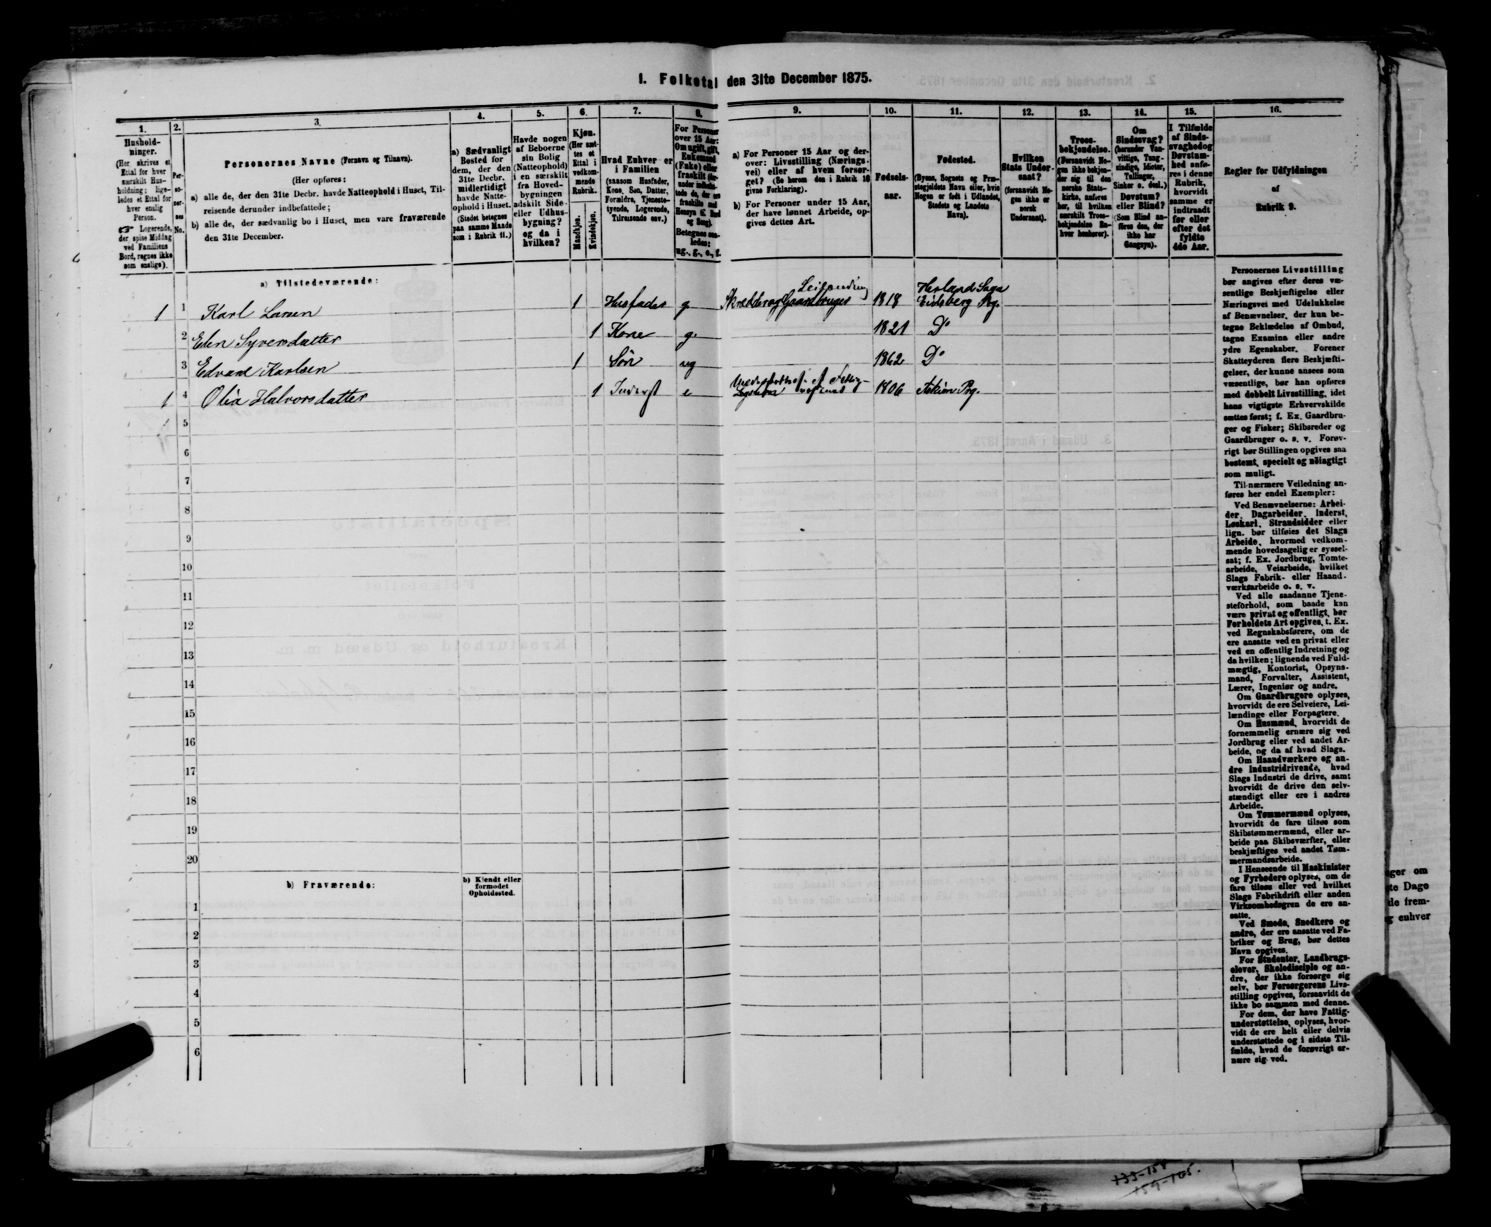 I. Folketal den 31te December 1875.
1.
2.
3.
4.
5.
6.
7.
8.
9.
10.
11.
12.
13.
14.
15.
16.
Hushold-
ninger.
(Her skrives et
Ettal for hver
særskilt Hus-
holdning; lige-
ledes et Ettal for
hver enslig
Person.
☞ Logerende,
der spise Middag
ved Familiens
Bord, regnes ikke
som enslige).
Per-
so-
ner-
nes
No.
Personernes Navne (Fornavn og Tilnavn).
(Her opføres:
a) alle de, der den 31te Decbr. havde Natteophold i Huset, Til-
reisende derunder indbefattede;
b) alle de, der sædvanlig bo i Huset, men vare fraværende
den 31te December.
a) Sædvanligt
Bosted for
dem, der den
31te Decbr.
midlertidigt
havde Natte-
ophold i Huset.
(Stedet betegnes
paa samme Maade
som i Rubrik 11.)
Havde nogen
af Beboerne
sin Bolig
(Natteophold)
i en særskilt
fra Hoved-
bygningen
adskilt Side-
eller Udhus-
bygning?
og da i
hvilken?
Kjøn.
(Her sæt-
tes et
Ettal i
vedkom-
mende
Rubrik.
Mandkjøn.
Kvindekjøn.
Hvad Enhver er
i Familien
(saasom Husfader,
Kone, Søn, Datter,
Forældre, Tjeneste-
tyende, Logerende,
Tilreisende osv.)
For Personer
over 15 Aar:
Om ugift, gift,
Enkemand
(Enke) eller
fraskilt
Betegnes saa-
ledes:
ug., g., e., f.
a) For Personer 15 Aar og der-
over: Livsstilling (Nærings-
vei) eller af hvem forsør-
get? (Se herom den i Rubrik 16
givne Forklaring).
b) For Personer under 15 Aar,
der have lønnet Arbeide, op-
gives dettes Art.
Fødsels-
aar.
Fødested.
(Byens, Sognets og Præ-
stegjeldets Navn eller, hvis
Nogen er født i Udlandet,
Stedets og Landets
Navn).
Hvilken
Stats Under-
saat?
(forsaavidt No-
gen ikke er
norsk
Undersaat).
Troes-
bekjendelse.
(Forsaavidt No-
gen ikke bekjen-
der sig til den
norske Stats-
kirke, anføres
her, til hvilken
særskilt Troes-
bekjendelse En-
hver henhører).
Om
Sindssvag?
(herunder Van-
vittige, Tung-
sindige, Idioter,
Tullinger,
Sinker o. desl.)
Døvstum?
eller Blind?
(Som Blind an-
føres den, der
ikke har
Gangsyn).
I Tilfælde
af Sinds-
svaghed og
Døvstum-
hed anfø-
res i denne
Rubrik,
hvorvidt
samme er
indtraadt
før eller
efter det
fyldte
4de Aar.
Regler for Udfyldningen
af
Rubrik 9.
a) Tilstedeværende:
1 1 Karl Larsen 1 Husfader g Skrædder og Gaardbruger Leilænding 1818 Herland Sogn Eidsberg Prg.
2 Elen Syversdatter 1 Kone g. 1821 Do
3 Edvard Karlsen 1 Søn ug 1862 Do
1 4 Olia Halvorsdatter 1 Inderst e 1806 Askim Prg.
5
6
7
8
9
10
11
12
13
14
15
16
17
18
19
20
b) Fraværende:
b) Kjendt eller
formodet
Opholdssted.
1
2
3
4
5
6
Personernes Livsstilling
bør angives efter deres væ-
sentlige Beskjæftigelse eller
Næringsvei med Udelukkelse
af Benævnelser, der kun be-
tegne Beklædelse af Ombud,
tagne Examina eller andre
ydre Egenskaber. Forener
Skatteyderen flere Beskjæfti-
gelser, der kunne ansees som
væsentlige, bør han opføres
med dobbelt Livsstilling, idet
hans vigtigste Erhvervskilde
sættes først; f. Ex. Gaardbru-
ger og Fisker; Skibsreder og
Gaardbruger o. s. v. Forøv-
rigt bør Stillingen opgives saa
bestemt, specielt og nøiagtigt
som muligt.
Til nærmere Veiledning an-
føres her endel Exempler:
Ved Benævnelserne: Arbei-
der, Dagarbeider, Inderst,
Løskarl, Strandsidder eller
lign. bør tilføies det Slags
Arbeide, hvormed vedkom-
mende hovedsagelig er syssel-
sat; f. Ex. Jordbrug, Tomte-
arbeide, Veiarbeide, hvilket
Slags Fabrik- eller Haand-
værksarbeide o. s. v.
Ved alle saadanne Tjene-
steforhold, som baade kan
være privat og offentligt, bør
Forholdets Art opgives, t. Ex.
ved Regnskabsførere, om de
ere ansatte ved en privat eller
ved en offentlig Indretning og
da hvilken; lignende ved Fuld-
mægtig, Kontorist, Opsyns-
mand, Forvalter, Assistent,
Lærer, Ingeniør og andre.
Om Gaardbrugere oplyses,
hvorvidt de ere Selveiere, Lei-
lændinge eller Forpagtere.
Om Husmænd, hvorvidt de
fornemmelig ernære sig ved
Jordbrug eller ved andet Ar-
beide, og da af hvad Slags.
Om Haandværkere og an-
dre Industridrivende, hvad
Slags Industri de drive, samt
hvorvidt de drive den selv-
stændigt eller ere i andres
Arbeide.
Om Tømmermænd oplyses,
hvorvidt de fare tilsøs som
Skibstømmermænd, eller ar-
beide paa Skibsværfter, eller
beskjæftiges ved andet Tøm-
mermandsarbeide.
I Henseende til Maskinister
og Fyrbødere oplyses, om de
fare tilsøs eller ved hvilket
Slags Fabrikdrift eller anden
Virksomhedsgren de ere an-
satte.
Ved Smede, Snedkere og
andre, der ere ansatte ved Fa-
briker og Brug, bør dettes
Navn opgives.
For Studenter, Landbrugs-
elever, Skoledisciple og an-
dre, der ikke forsørge sig
selv, bør Forsørgerens Livs-
stilling opgives, forsaavidt de
ikke bo sammen med denne.
For dem, der have Fattig-
understøttelse, oplyses, hvor-
vidt de ere helt eller delvis
understøttede og i sidste Til-
fælde, hvad de forøvrigt er-
nære sig ved.